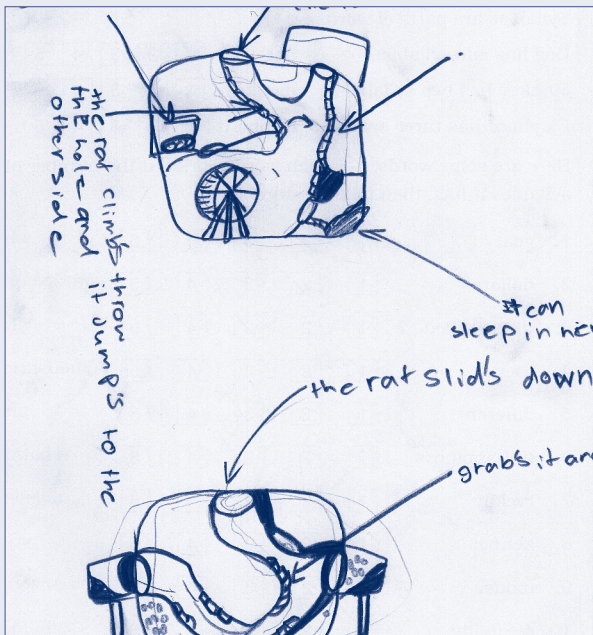 the rat climbs throw
the hole and it Jump's to the
other side
It can
sleep in
the rat slid's down
grab's it